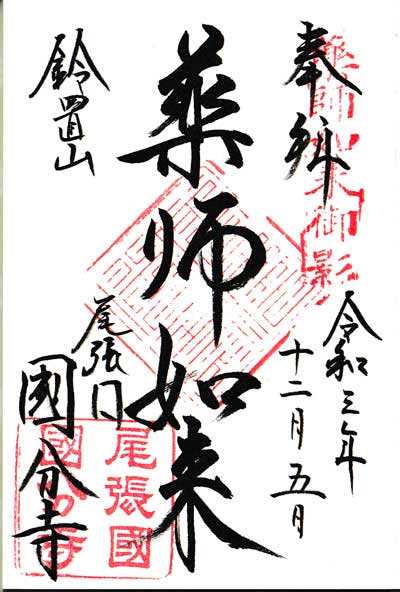 奉拝
薬師如来御影
令和三年
十二月五日
薬師如来
鈴置山
尾張
國分寺
尾張國
國分寺